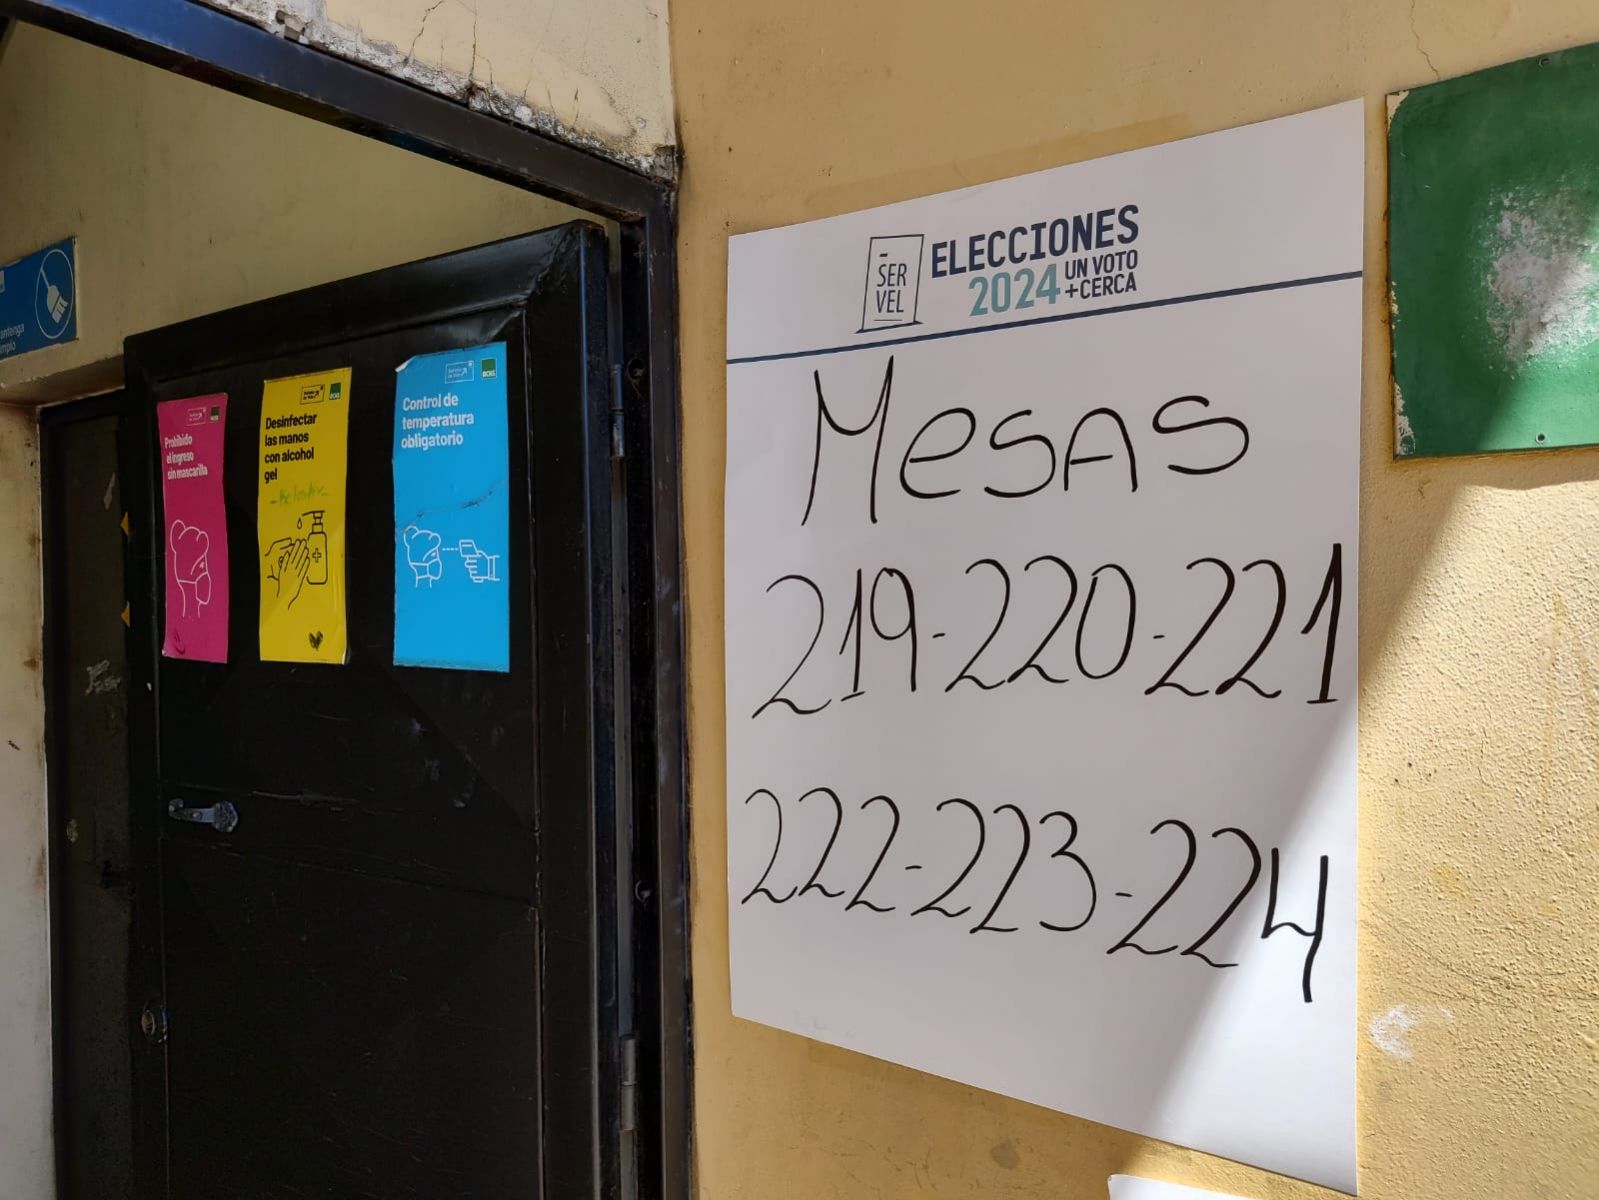 SER
VEL
ELECCIONES
2024 UN VOTO
+CERCA
Mesas
219-220-221
222-223-224
Prohibido
el ingreso
sin mascarilla
Desinfectar
las manos
con alcohol
gel
Control de
temperatura
obligatorio
ACHS